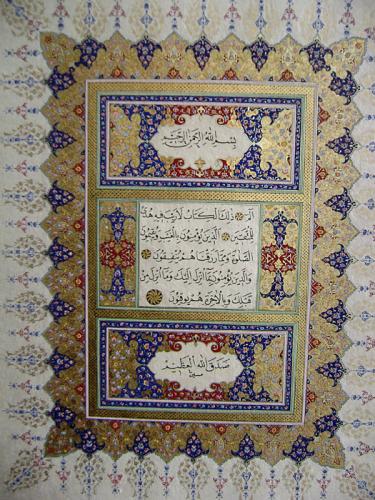 بِسْمِ اللهِ الرَّحْمٰنِ الرَّحِيمِ
الٓمٓ ذٰلِكَ الْكِتَابُ لَا رَيْبَ فِيهِ هُدًى
لِلْمُتَّقِينَ الَّذِينَ يُؤْمِنُونَ بِالْغَيْبِ وَيُقِيمُونَ
الصَّلٰوةَ وَمِمَّا رَزَقْنَاهُمْ يُنْفِقُونَ
وَالَّذِينَ يُؤْمِنُونَ بِمَا أُنْزِلَ إِلَيْكَ وَمَا أُنْزِلَ مِنْ
قَبْلِكَ وَبِالْاٰخِرَةِ هُمْ يُوقِنُونَ
صَدَقَ اللهُ الْعَظِيمُ